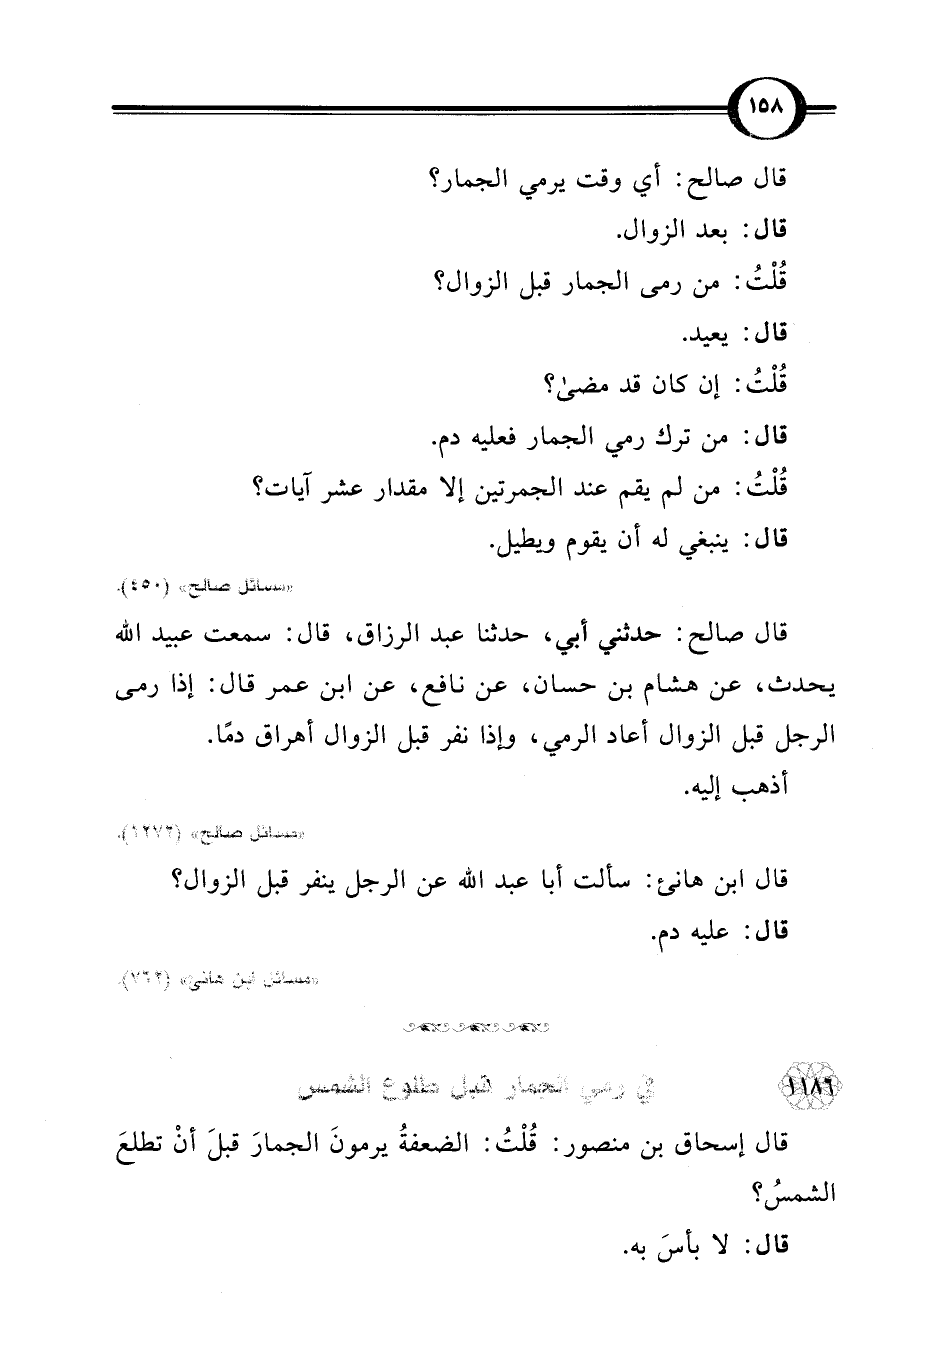 ١٥٨
قال صالح: أي وقت يرمي الجمار؟
قال: بعد الزوال.
قُلْتُ: من رمى الجمار قبل الزوال؟
قال: يعيد.
قُلْتُ: إن كان قد مضىٰ؟
قال: من ترك رمي الجمار فعليه دم.
قُلْتُ: من لم يقم عند الجمرتين إلا مقدار عشر آيات؟
قال: ينبغي له أن يقوم ويطيل.
«مسائل صالح» (٤٥٠).
قال صالح: حدثني أبي، حدثنا عبد الرزاق، قال: سمعت عبيد الله
يحدث، عن هشام بن حسان، عن نافع، عن ابن عمر قال: إذا رمى
الرجل قبل الزوال أعاد الرمي، وإذا نفر قبل الزوال أهراق دمًا.
أذهب إليه.
«مسائل صالح» (١٢٧٦).
قال ابن هانئ: سألت أبا عبد الله عن الرجل ينفر قبل الزوال؟
قال: عليه دم.
«مسائل ابن هانئ» (٧٦٢).
١١٨٦ في رمي الجمار قبل طلوع الشمس
قال إسحاق بن منصور: قُلْتُ: الضعفةُ يرمونَ الجمارَ قبلَ أنْ تطلعَ
الشمسُ؟
قال: لا بأسَ به.